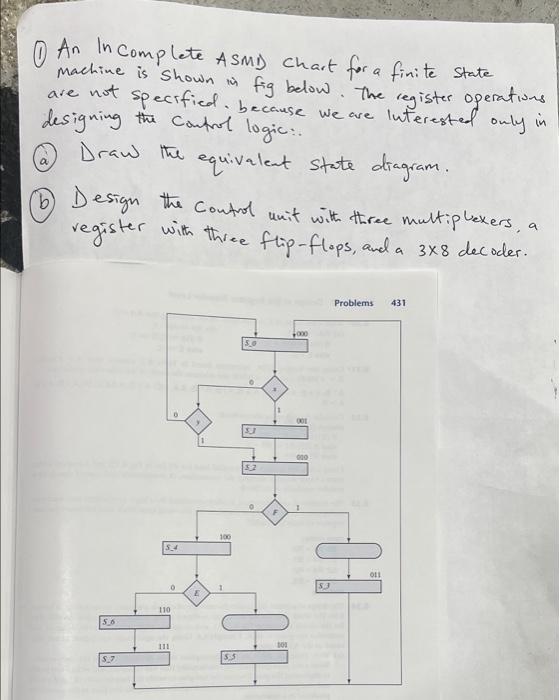 ① An Incomplete ASMD Chart for a finite state
machine is shown in fig below. The register operations
are not specified. because we are Interested only in
designing the control logic:.
ⓐ Draw the equivalent state diagram.
ⓑ Design the control unit with three multiplexers, a
register with three flip-flops, and a 3X8 decoder.
Problems 431
000
S_0
0 x
1
0 y
1
001
S_1
010
S_2
0 F 1
100
S_4
011
S_3
0 E 1
110
S_6
111
S_7
101
S_5